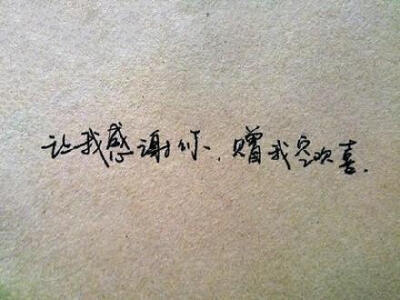 让我感谢你，赠我空欢喜．